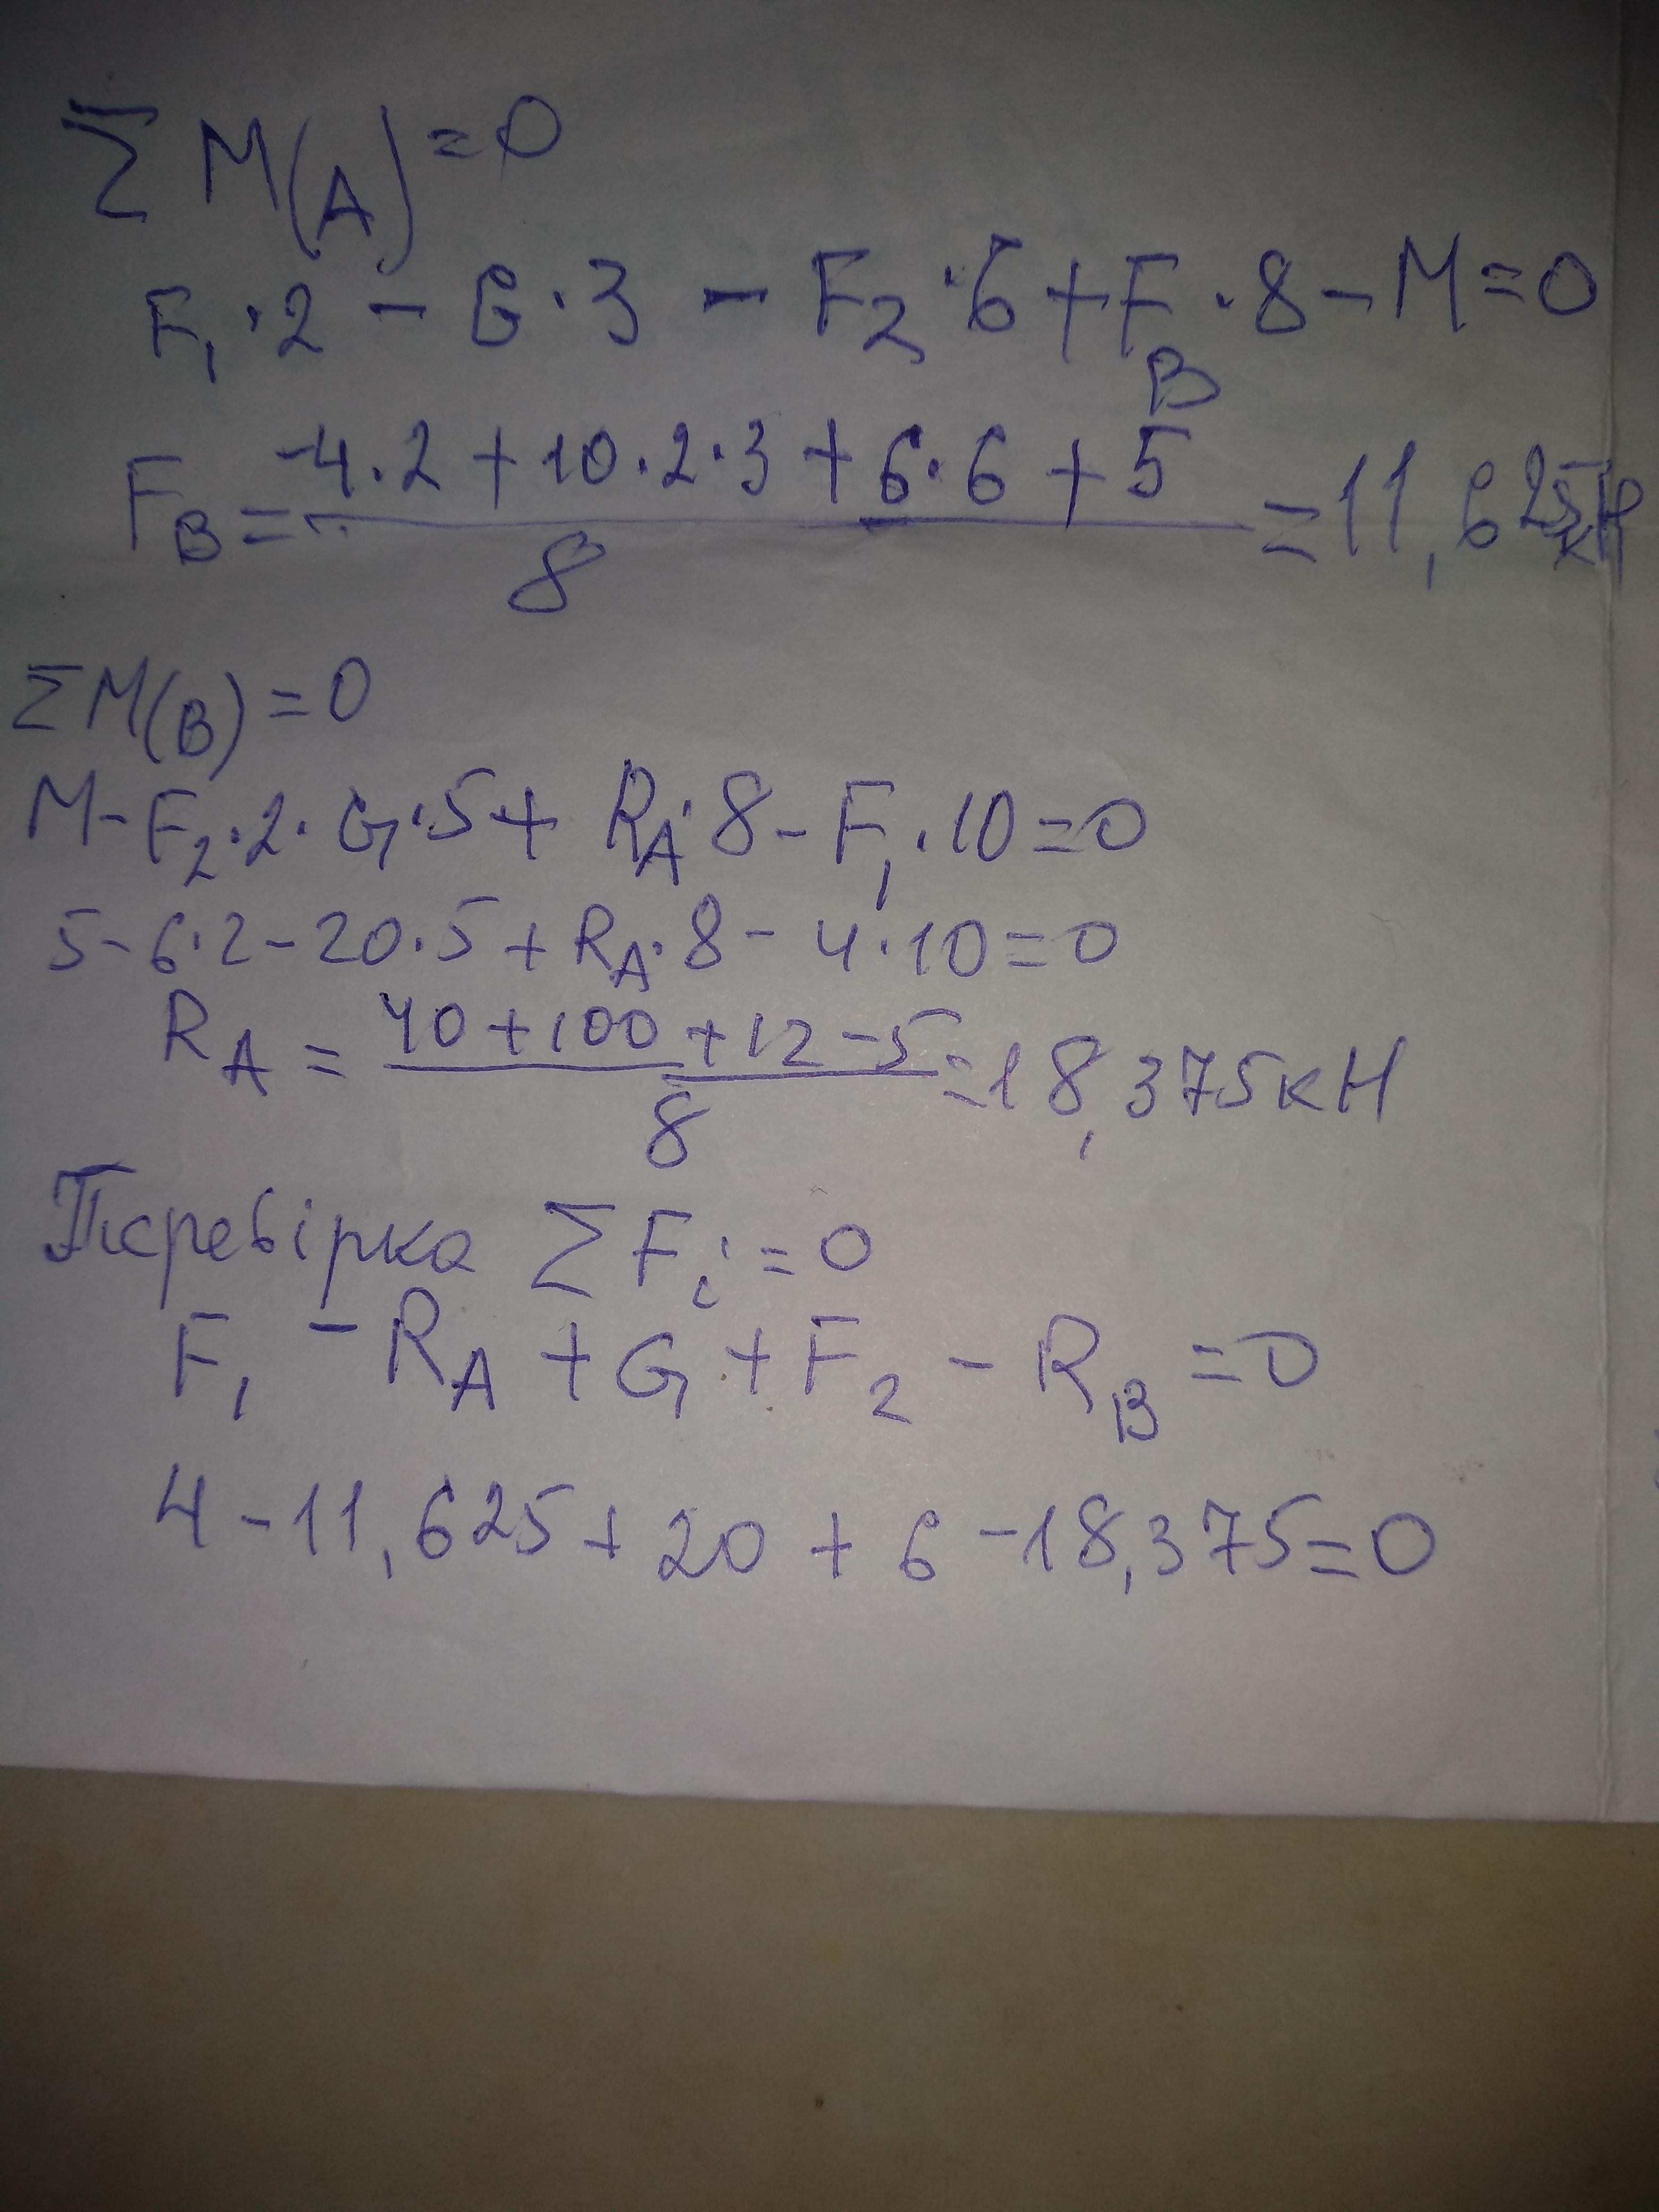 ΣM(A)=0
F₁·2 - G·3 - F₂·6+F_B·8-M=0
F_B = (-4·2+10·2·3+6·6+5)/8 = 11,625кН
ΣM(B)=0
M-F₂·2·G·5+R_A·8-F₁·10=0
5-6·2-20·5+R_A·8-4·10=0
R_A = (40+100+12-5)/8 = 18,375кН
Перевірка ΣFᵢ=0
F₁ - R_A + G + F₂ - R_B = 0
4-11,625+20+6-18,375=0